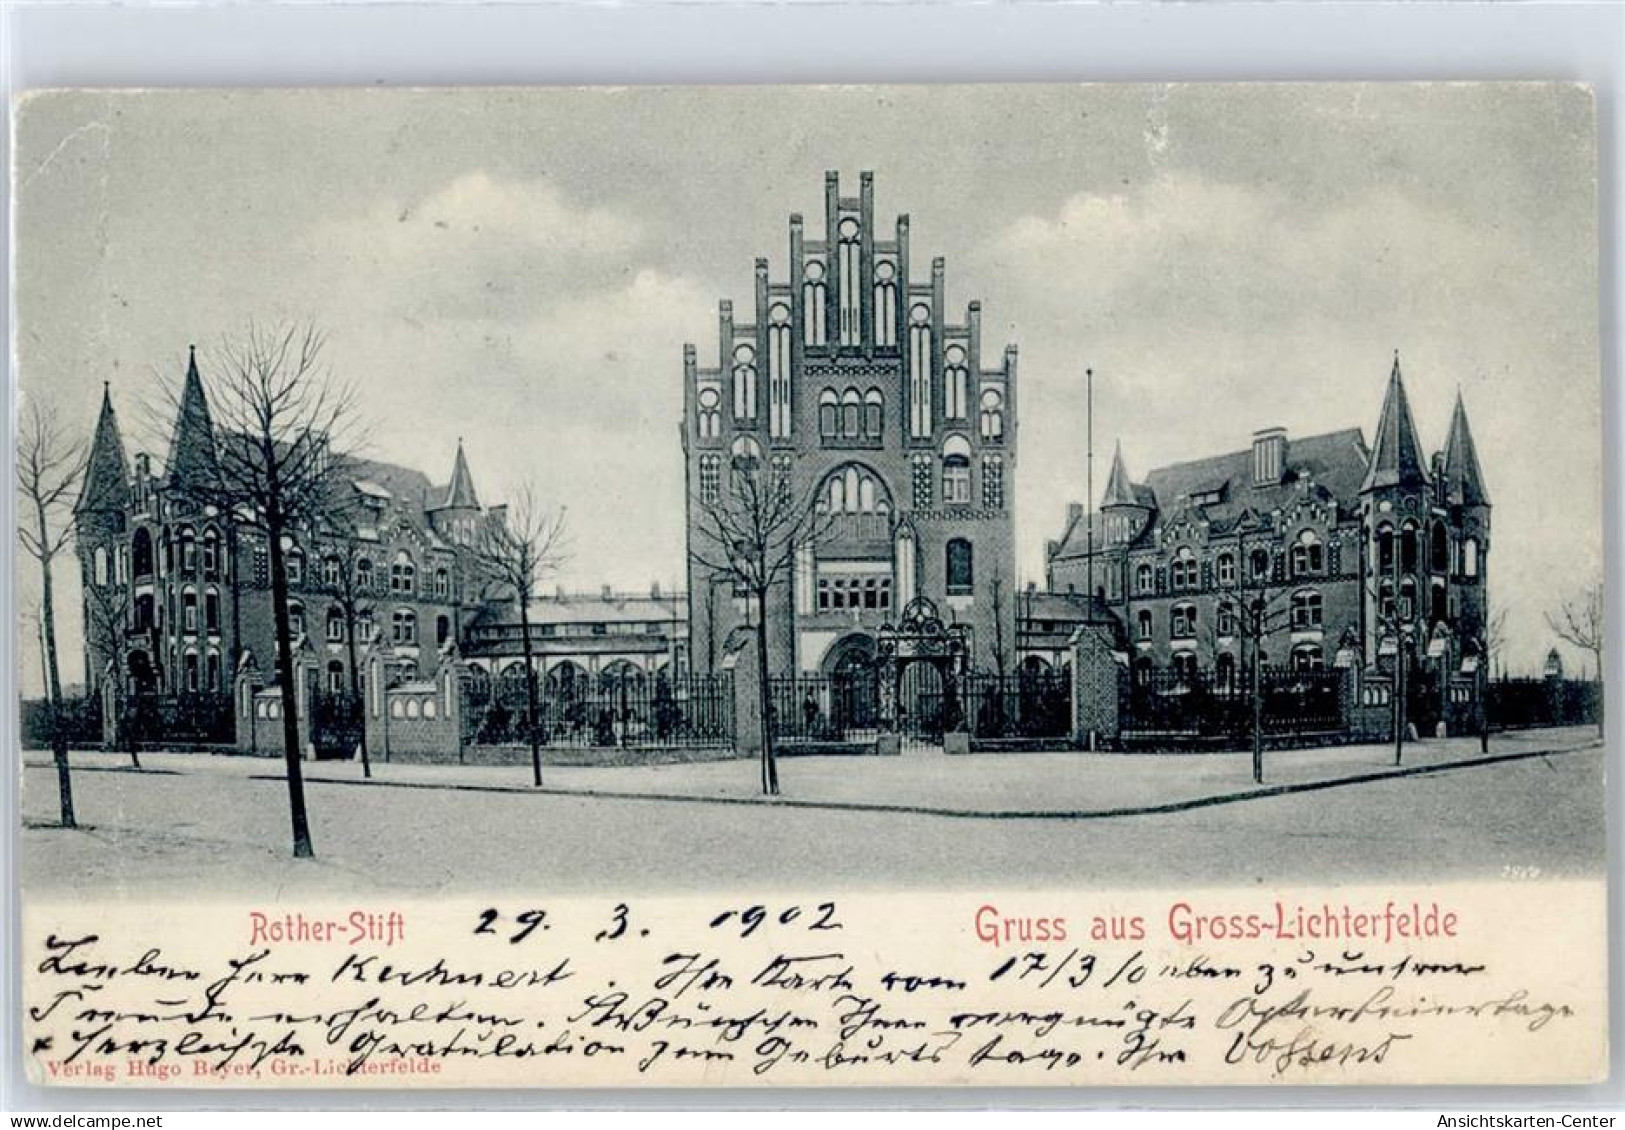 2980
Rother-Stift 29. 3. 1902 Gruss aus Gross-Lichterfelde
Lieber Herr. Ihre Karte vom 17/3 haben zu unsrer
Freude erhalten. Wünschen Ihnen vergnügte Osterfeiertage
+ herzlichste Gratulation zum Geburtstage. Ihre
Verlag Hugo Beyer, Gr.-Lichterfelde
delcampe.net
Ansichtskarten-Center